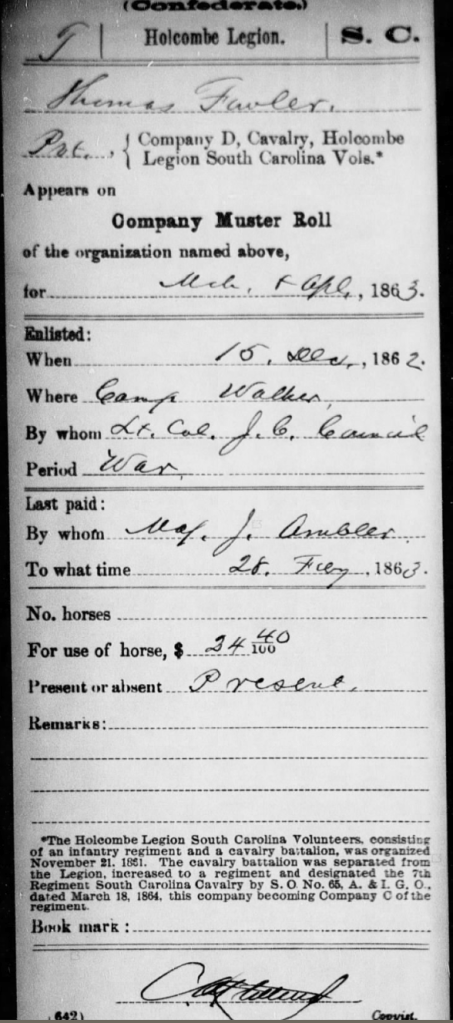 (Confederate.)
Holcombe Legion. S. C.
Thomas Fowler.
Pvt., { Company D, Cavalry, Holcombe
Legion South Carolina Vols.*
Appears on
Company Muster Roll
of the organization named above,
for Mch. & Apl., 1863.
Enlisted:
When 15. Dec., 1862.
Where Camp Walker,
By whom Lt. Col. J. C. Council
Period War,
Last paid:
By whom Maj. J. Ambler
To what time 28. Feby, 1863.
No. horses
For use of horse, $ 24 40/100
Present or absent Present,
Remarks:
*The Holcombe Legion South Carolina Volunteers, consisting
of an infantry regiment and a cavalry battalion, was organized
November 21, 1861. The cavalry battalion was separated from
the Legion, increased to a regiment and designated the 7th
Regiment South Carolina Cavalry by S. O. No. 65, A. & I. G. O.,
dated March 18, 1864, this company becoming Company C of the
regiment.
Book mark:
(642) Copyist.